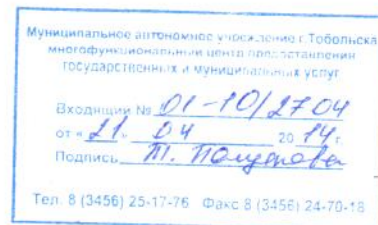 Муниципальное автономное учреждение г.Тобольска
многофункциональный центр предоставления
государственных и муниципальных услуг
Входящий № 01-10/2704
от « 21 » 04 20 14 г.
Подпись Т.
Тел. 8 (3456) 25-17-76 Факс 8 (3456) 24-70-18